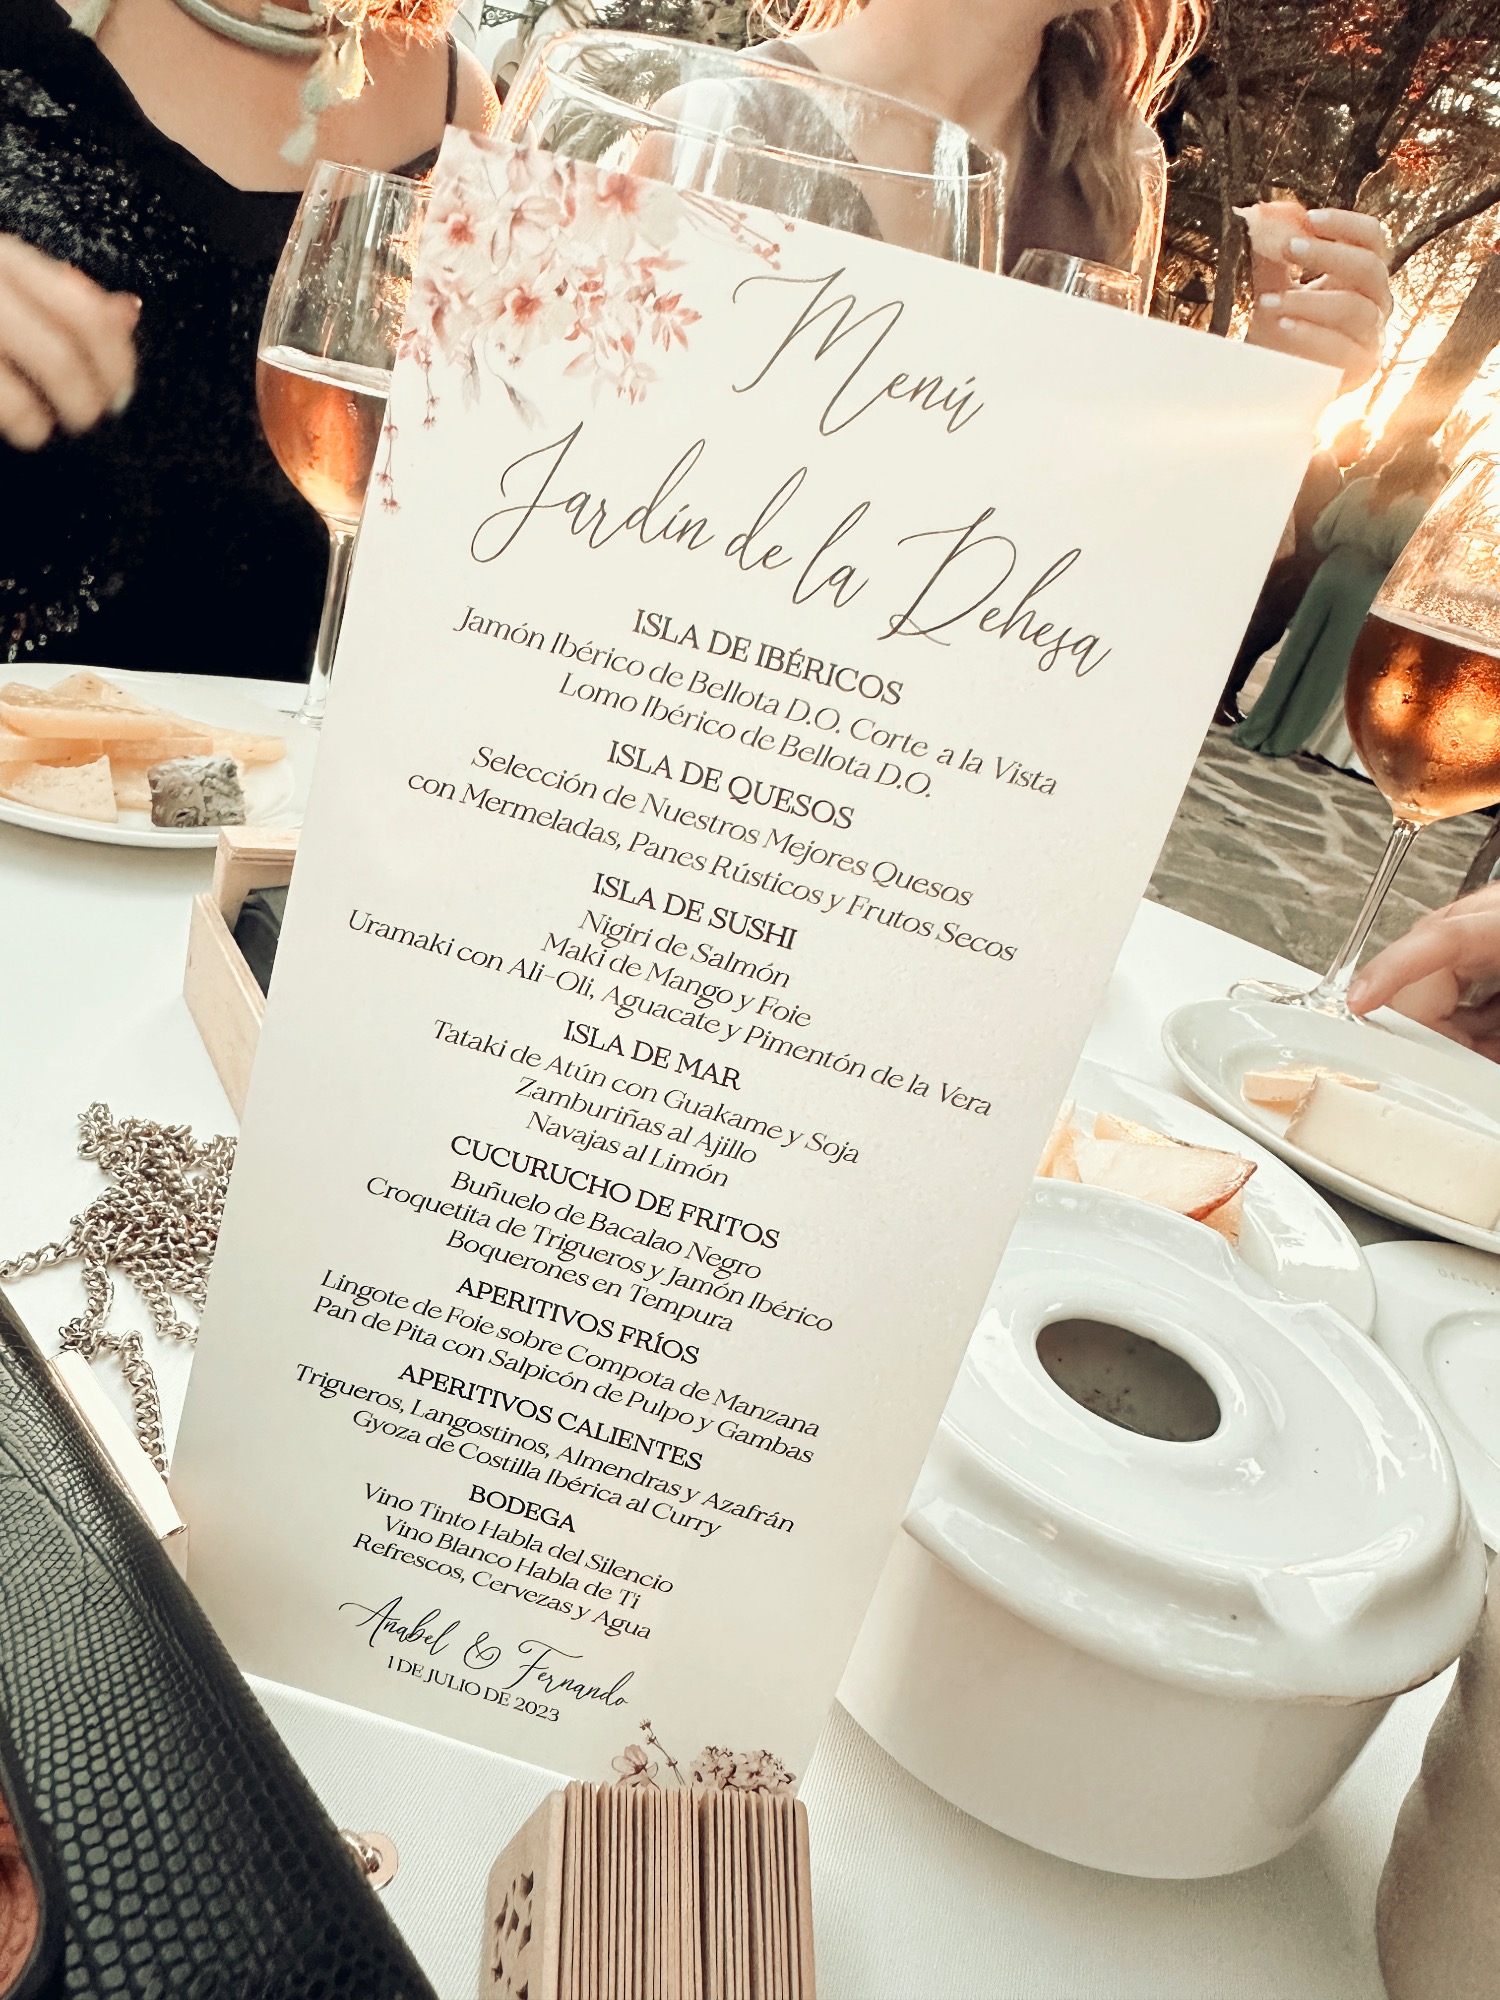 Menú
Jardín de la Dehesa
ISLA DE IBÉRICOS
Jamón Ibérico de Bellota D.O. Corte a la Vista
Lomo Ibérico de Bellota D.O.
ISLA DE QUESOS
Selección de Nuestros Mejores Quesos
con Mermeladas, Panes Rústicos y Frutos Secos
ISLA DE SUSHI
Nigiri de Salmón
Maki de Mango y Foie
Uramaki con Ali-Oli, Aguacate y Pimentón de la Vera
ISLA DE MAR
Tataki de Atún con Guakame y Soja
Zamburiñas al Ajillo
Navajas al Limón
CUCURUCHO DE FRITOS
Buñuelo de Bacalao Negro
Croquetita de Trigueros y Jamón Ibérico
Boquerones en Tempura
APERITIVOS FRÍOS
Lingote de Foie sobre Compota de Manzana
Pan de Pita con Salpicón de Pulpo y Gambas
APERITIVOS CALIENTES
Trigueros, Langostinos, Almendras y Azafrán
Gyoza de Costilla Ibérica al Curry
BODEGA
Vino Tinto Habla del Silencio
Vino Blanco Habla de Ti
Refrescos, Cervezas y Agua
Anabel & Fernando
1 DE JULIO DE 2023